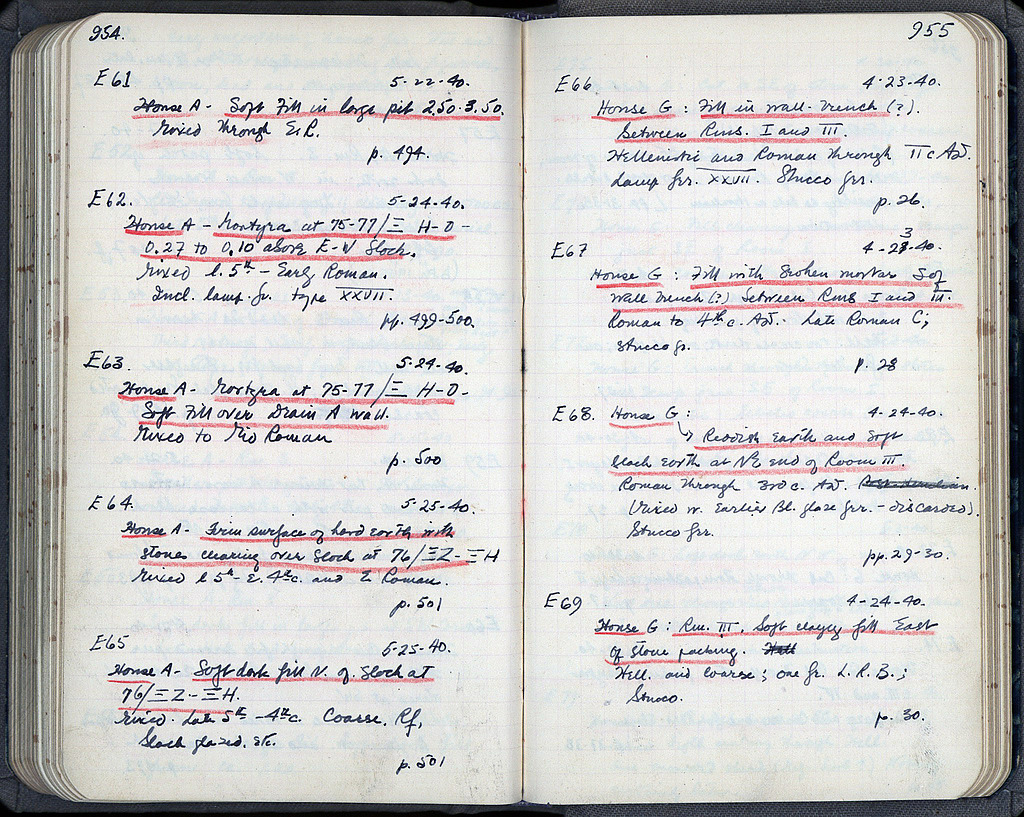 954.
E61 5-22-40.
House A - Soft Fill in large pit 2.50-3.50.
Mixed through E.R.
p. 494.
E62. 5-24-40.
House A - Mortyra at 75-77/Ξ H-O -
0.27 to 0.10 above E-W Block.
Mixed l. 5th - Early Roman.
Incl. lamp fr. type XXVII.
pp. 499-500.
E63 5-24-40.
House A - Mortyra at 75-77/Ξ H-O -
Soft Fill over Drain A wall.
Mixed to Mid Roman
p. 500
E64. 5-25-40.
House A - Firm surface of hard earth with
stones clearing over block at 76/ΞZ-ΞH
Mixed l 5th - E. 4th c. and E Roman.
p. 501
E65 5-25-40.
House A - Soft dark fill N. of Block at
76/ΞZ-ΞH.
Mixed. Late 5th - 4th c. Coarse, Rf,
Black glazed, etc.
p. 501
955
E66 4-23-40.
House G : Fill in wall-trench (?).
Between Rms. I and III.
Hellenistic and Roman through II c A.D.
Lamp fr. XXVII. Stucco frr.
p. 26.
E67 4-23-40.
House G : Fill with broken mortar S of
wall trench (?) between Rms I and III.
Roman to 4th c. A.D. Late Roman C;
Stucco fr.
p. 28
E68. House G : 4-24-40.
Reddish Earth and Soft
black Earth at NE end of Room III.
Roman through 3rd c. A.D.
(Mixed w. Earlier Bl. glaze frr. - discarded).
Stucco frr.
pp. 29-30.
E69 4-24-40.
House G : Rm. III. Soft clayey fill East
of Stone packing.
Hell. and coarse; one fr. L.R.B.;
Stucco.
p. 30.